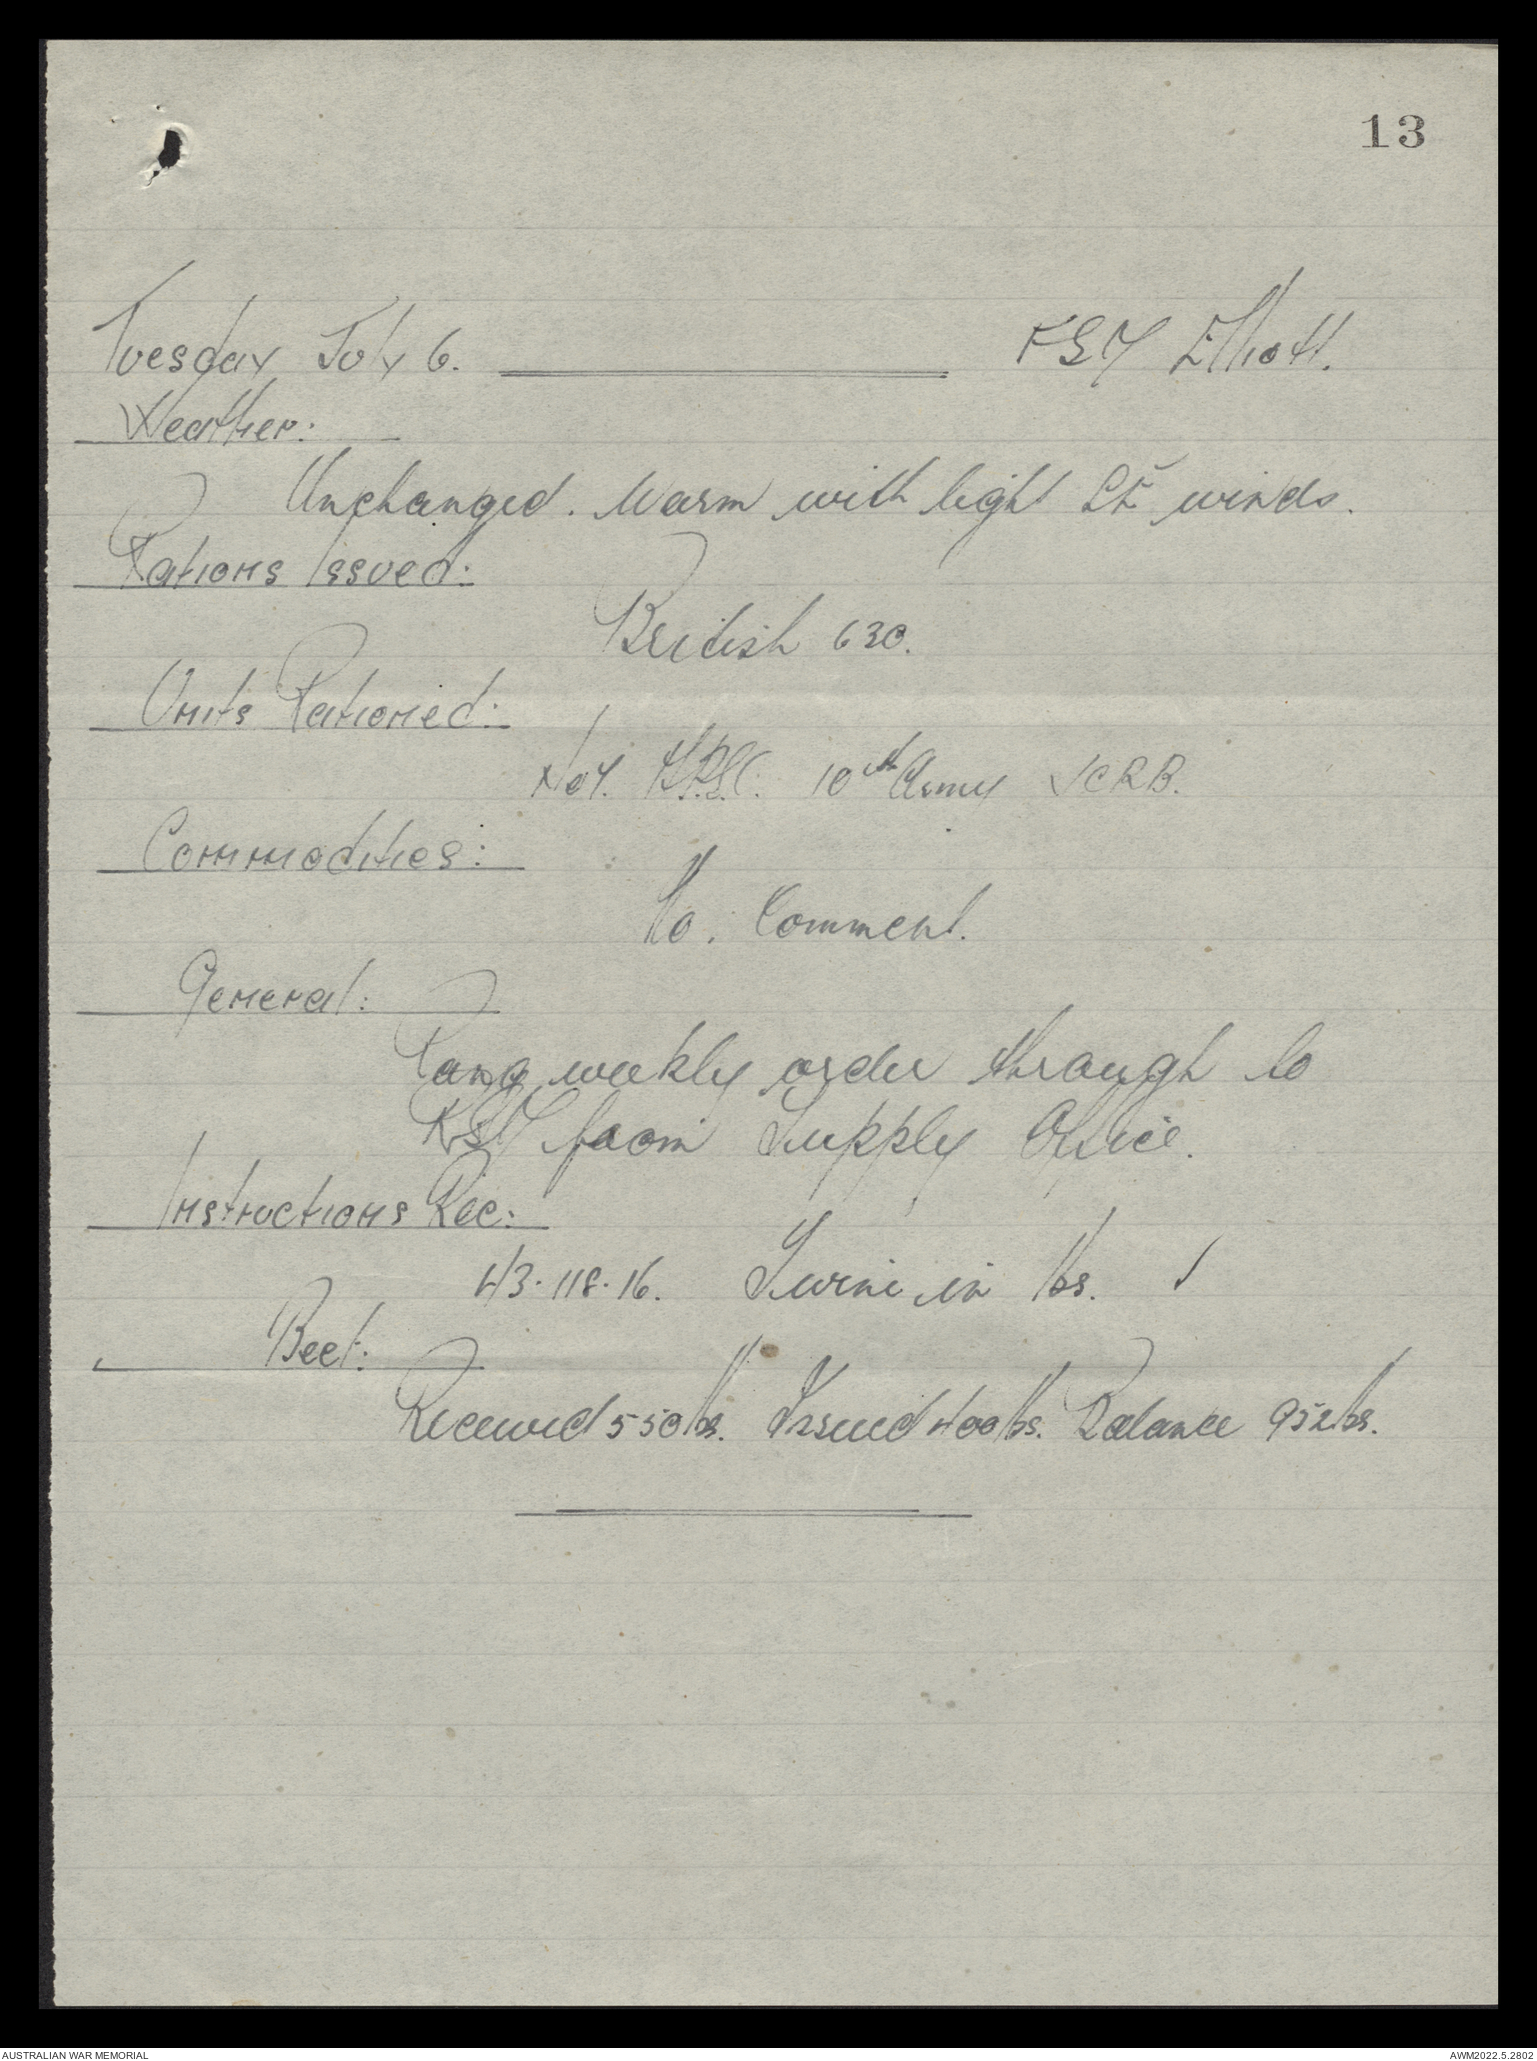 13
Tuesday July 6. Elliott.
Weather:
Unchanged. Warm with light winds.
Rations Issued:
British 630.
Units Rationed:
10th Army
Commodities:
No. Comment.
General:
Rang weekly order through to
from Supply Office.
Instructions Rec:
43.118.16. in lbs.
Beef:
Received 550 lbs. Issued 400 lbs. Balance 952 lbs.
AUSTRALIAN WAR MEMORIAL AWM2022.5.2802